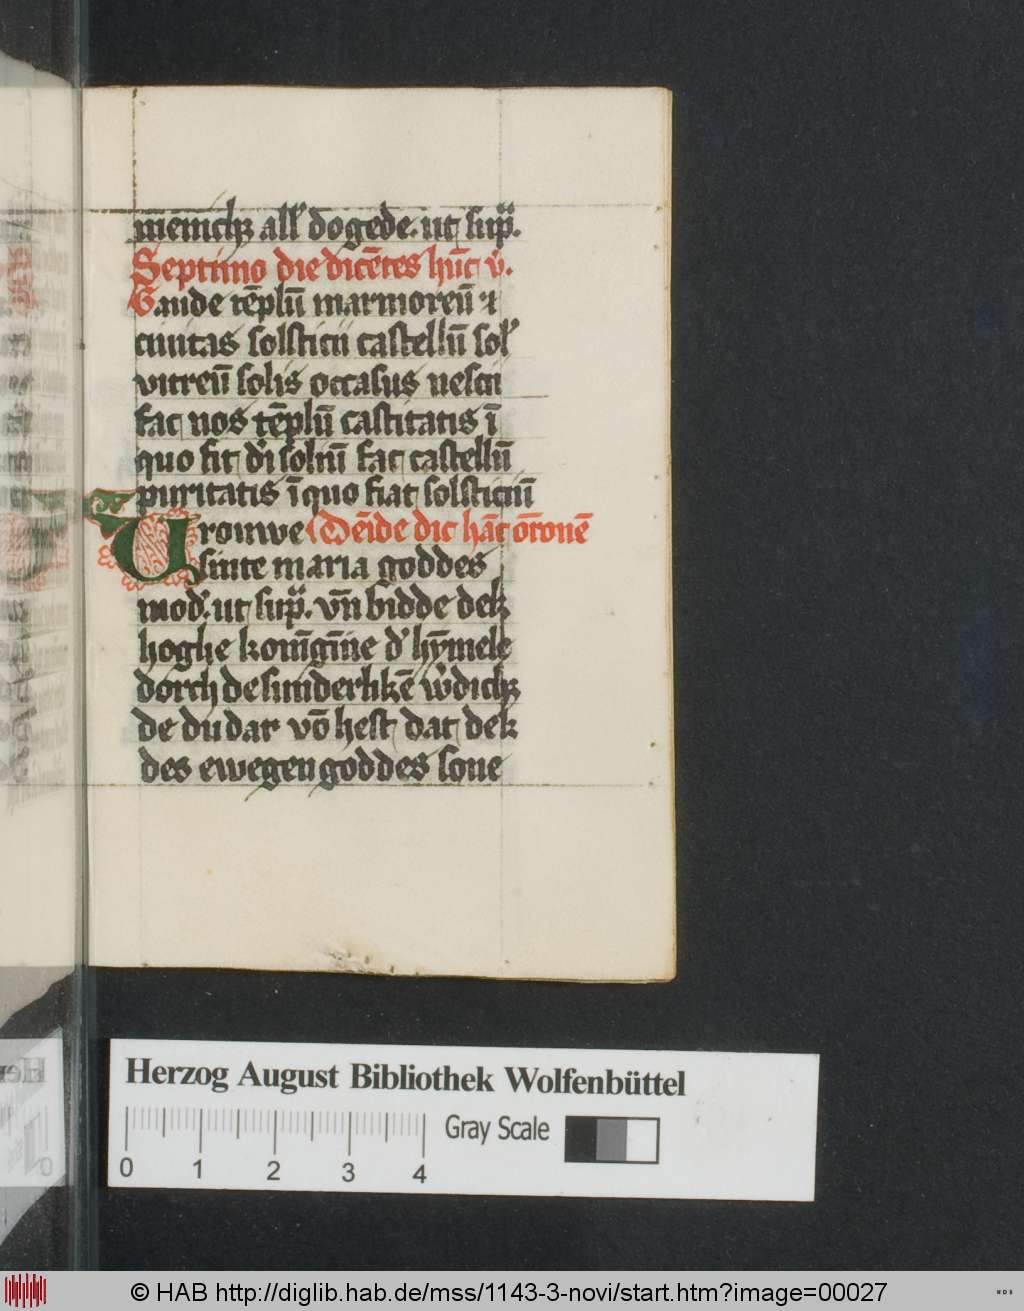 menichꝫ all' dogede. ut sup̃.
Septimo die dicētes hūc v̓.
Gaude tēplū marmoreū ⁊
ciuitas solsticii castellū sol'
vitreū solis occasus nescii
fac nos tēplū castitatis ī
quo sit di solitū fac castellū
puritatis ī quo fiat solsticiū
Vrouwe Deīde dic hāc or̄onē
sinte maria goddes
mod'. ut sup̃. vn̄ bidde dek
hoghe koniḡīne d' hȳmele
dorch de sunderlikē w̓dichꝫ
de du dar vō hest dat dek
des ewegen goddes sone
Herzog August Bibliothek Wolfenbüttel
Gray Scale
0 1 2 3 4
© HAB http://diglib.hab.de/mss/1143-3-novi/start.htm?image=00027